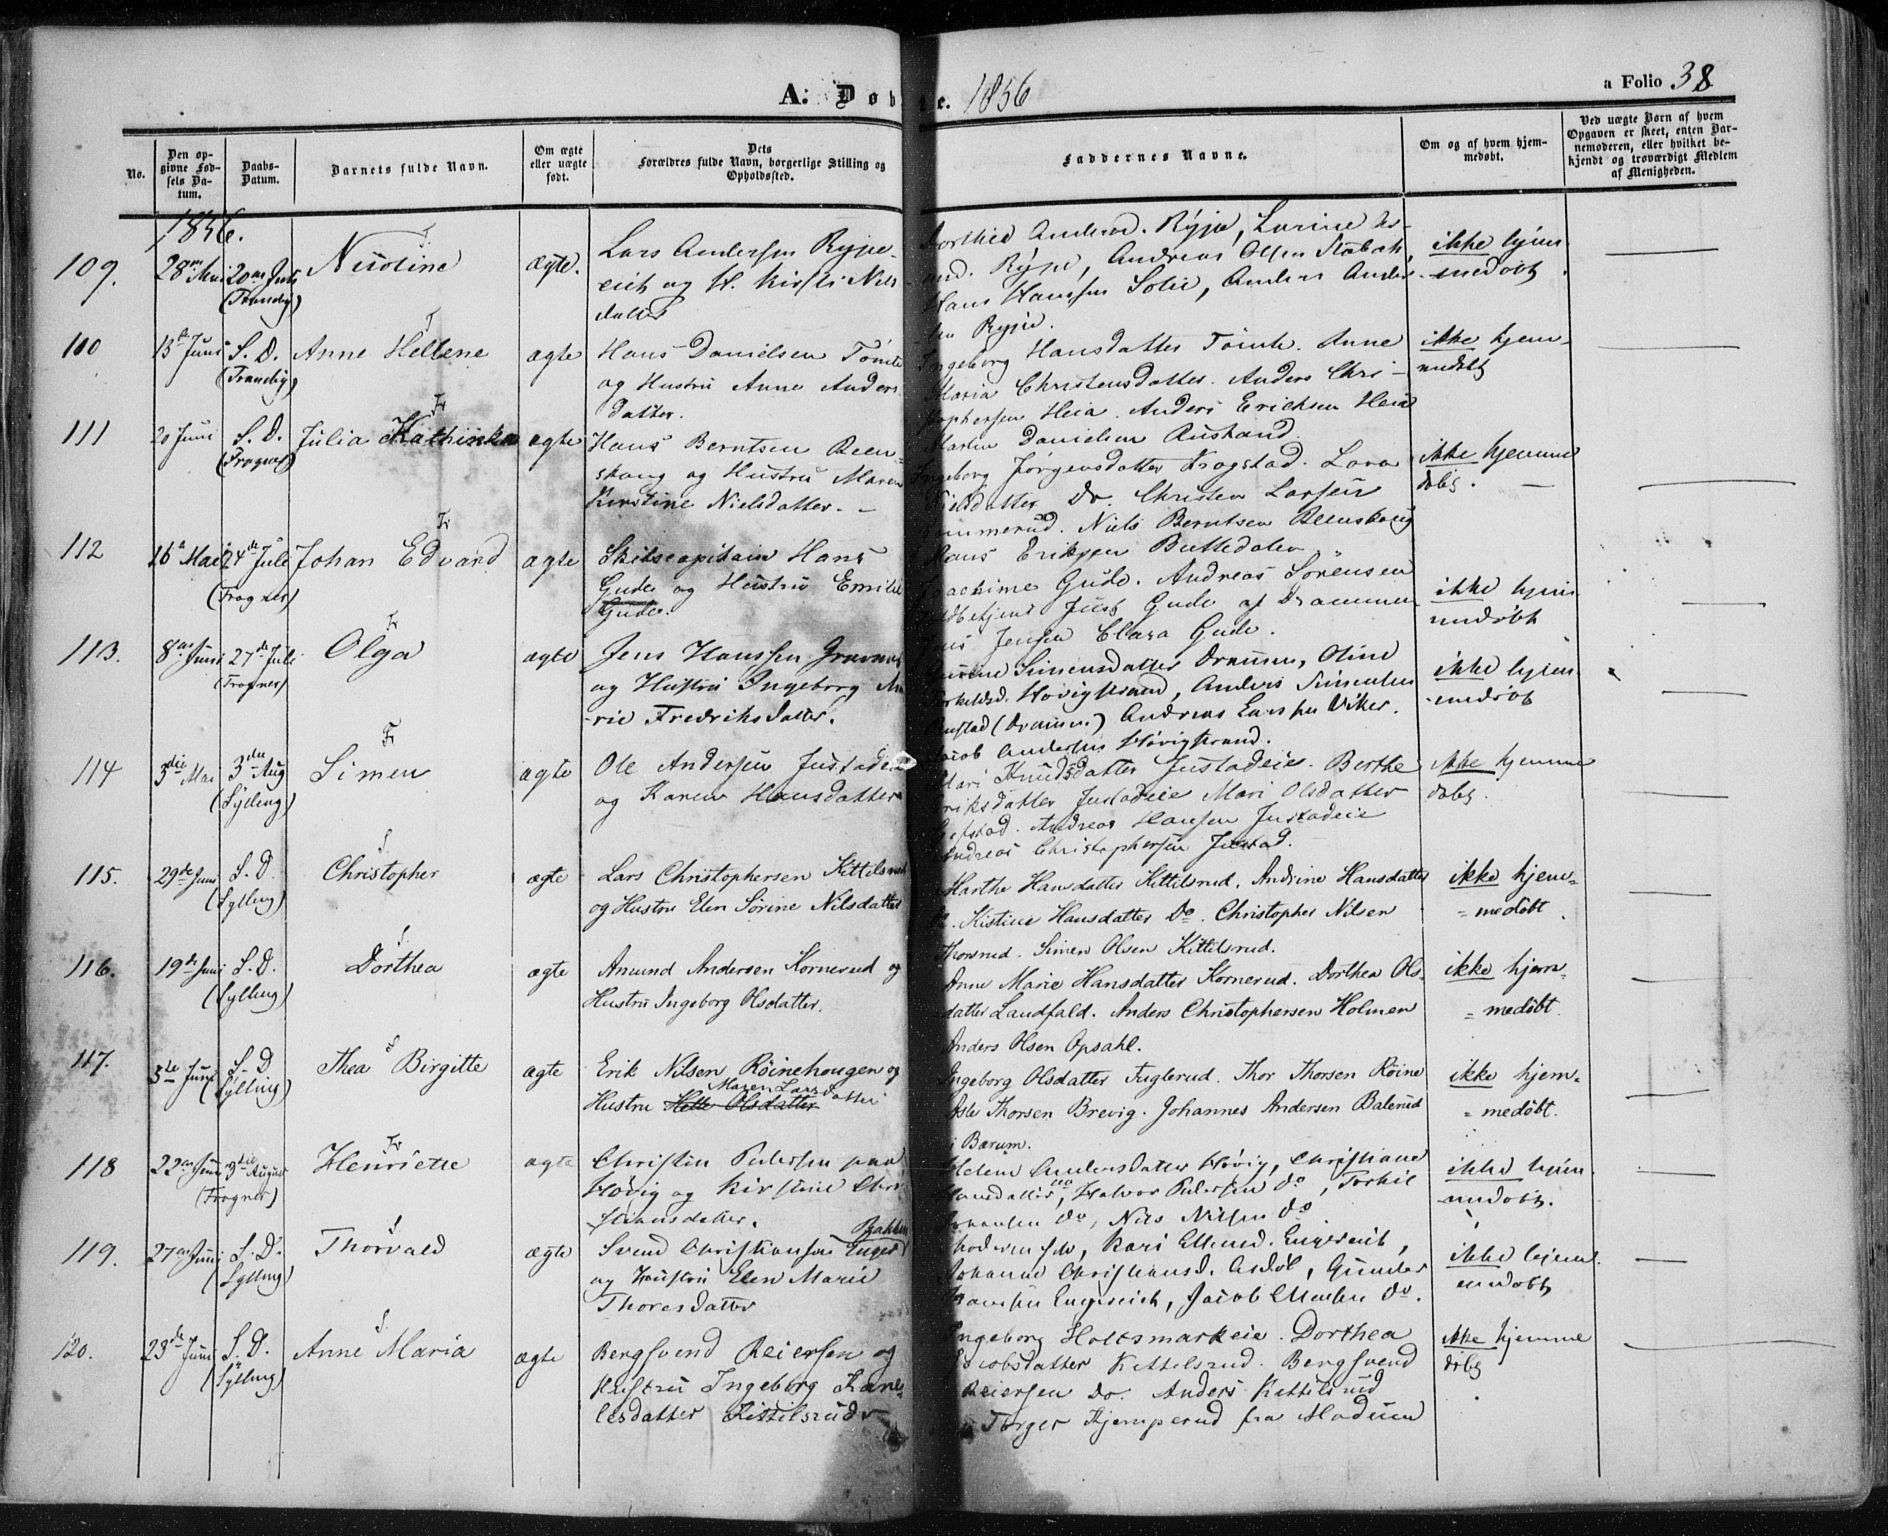 A. Døbte. 1856
a Folio 38
No.
Den opgivne Fødsels Datum.
Daabs-Datum.
Barnets fulde Navn.
Om ægte eller uægte født.
Dets Forældres fulde Navn, borgerlige Stilling og Opholdssted.
Faddernes Navne.
Om og af hvem hjemmedøbt.
Ved uægte Børn af hvem Opgaven er skeet, enten Barnemoderen, eller hvilket bekjendt og troværdigt Medlem af Menigheden.
1856.
109. 28 Mai 20 Juli (Tranby)
T
ægte.
Lars Andersen Rype-
eie og H. Kirsti Niels
datter
Rype, Andreas Olsen Stabæk,
Hans Hanssen Solie, Anders Ander-
sen Rypie.
ikke hjem-
medøbt.
110 13de Juni S. D. (Tranby)
T
Anne Hellene
ægte
Hans Danielsen Tømte
og Hustru Anne Anders
datter.
Ingeborg Hansdatter Tømte. Anne
Maria Christensdatter. Anders Chri-
stophersen Heia. Anders Ericksen Heia
Martin Danielsen Austand
ikke hjem-
medøbt
111 20 Juni S. D. (Frogner)
Fr
Julia Kathinka
ægte
Hans Berntsen Reen-
skoug og Hustru Maren
Kirstine Nielsdatter. -
Ingeborg Jørgensdatter Krogstad. Lava
Nielsdatter Do. Christen Larsen
Gunnerud. Niels Berntsen Reenskoug
Hans Eriksen Buttedalen
ikke hjemme
døbt.
112 16 Mai 24de Juli (Frogner)
Fr
Johan Edvard
ægte
Skibscapitain Hans
Gude og Hustru Emilie
Gude.
Joachime Gude. Andreas Sörensen
Just Gude af Drammen
Jensen Clara Gude.
ikke hjem-
medøbt
113. 8de Juni 27de Juli (Frogner)
Fr
Olga
ægte
Jens Hanssen Gravnes
og Hustru Ingeborg Ma-
rie Fredriksdatter.
Simensdatter Drammen, Oline
Torkeldsd. Høvigstrand, Anders Simensen
Austad (Drammn.) Andreas Larssen Viker.
Jacob Andersen Høvigstrand.
ikke hjem-
medøbt
114 3die Mai 3die Aug (Sylling)
Fr
Simen
ægte
Ole Andersen Justadeie
og Karen Hansdatter
Mari Knudsdatter Justadeie. Berthe
Eriksdatter Justadeie Mari Olsdatter
Gefstad. Andreas Hansen Justadeie
Andreas Christophersen Justad.
ikke hjemme
døbt.
115. 29de Juni S. D. (Sylling)
S.
Christopher
ægte
Lars Christophersen Kittilsrud
og Hustru Elen Sørine Nilsdatter
Marthe Hansdatter Kittilsrud. Andrine Hansdatter
Do. Kistine Hansdatter Do. Christopher Nilsen
Thorsrud. Simen Olsen Kittilsrud.
ikke hjem-
= medøbt.
116. 19de Juni S. D. (Sylling)
S.
Dorthea
ægte
Amund Andersen Kornerud og
Hustru Ingeborg Olsdatter.
Anne Marie Hansdatter Kornerud. Dorthea Ols-
datter Landfald. Anders Christophersen Holmen
Anders Olsen Opsahl.
ikke hjem-
= medøbt.
117. 5te Juni S. D (Sylling)
S
Thea Birgitte
ægte
Erik Nilsen Röinehougen og
Maren Larsdatter
Hustru Helle Olsdatter
Ingeborg Olsdatter Fuglerud. Thor Thorsen Röine
Asle Thorsen Brevig. Johannes Andersen Balerud
i Bærum.
ikke hjem-
= medøbt.
118 22 Juni 3die August (Frogner)
Fr
Henriette
ægte
Christen Pedersen paa
Høvig og Kirstine Chri-
stiansdatter.
Helene Andersdatter Høvig, Christiane
Hansdatter do, Halvor Pedersen do, Torkil
Johansen do, Nils Nilsen do
ikke hjem-
medøbt.
119. 27 Juni S. D. (Sylling)
S
Thorvald
ægte
Bakken
Svend Christiansen Enger
og Hustru Elen Marie
Thoresdatter
Moderen selv, Kari Ellensd. Engereie,
Johanne Christiansd. Asdøl, Gunder
Hansen Engereich, Jacob Ellensen do.
ikke hjem-
medøbt
120. 23de Juni S. D. (Sylling)
S.
Anne Maria
ægte
Bergsvend Reiersen og
Hustru Ingeborg Kane-
lesdatter Kittilsrud
Ingeborg Holtsmarkeie. Dorthea
Jacobsdatter Kittelsrud. Bergsvend
Reiersen Do. Anders Kittilsrud
Torger Kjemperud fra Modum
ikke hjemme
døbt